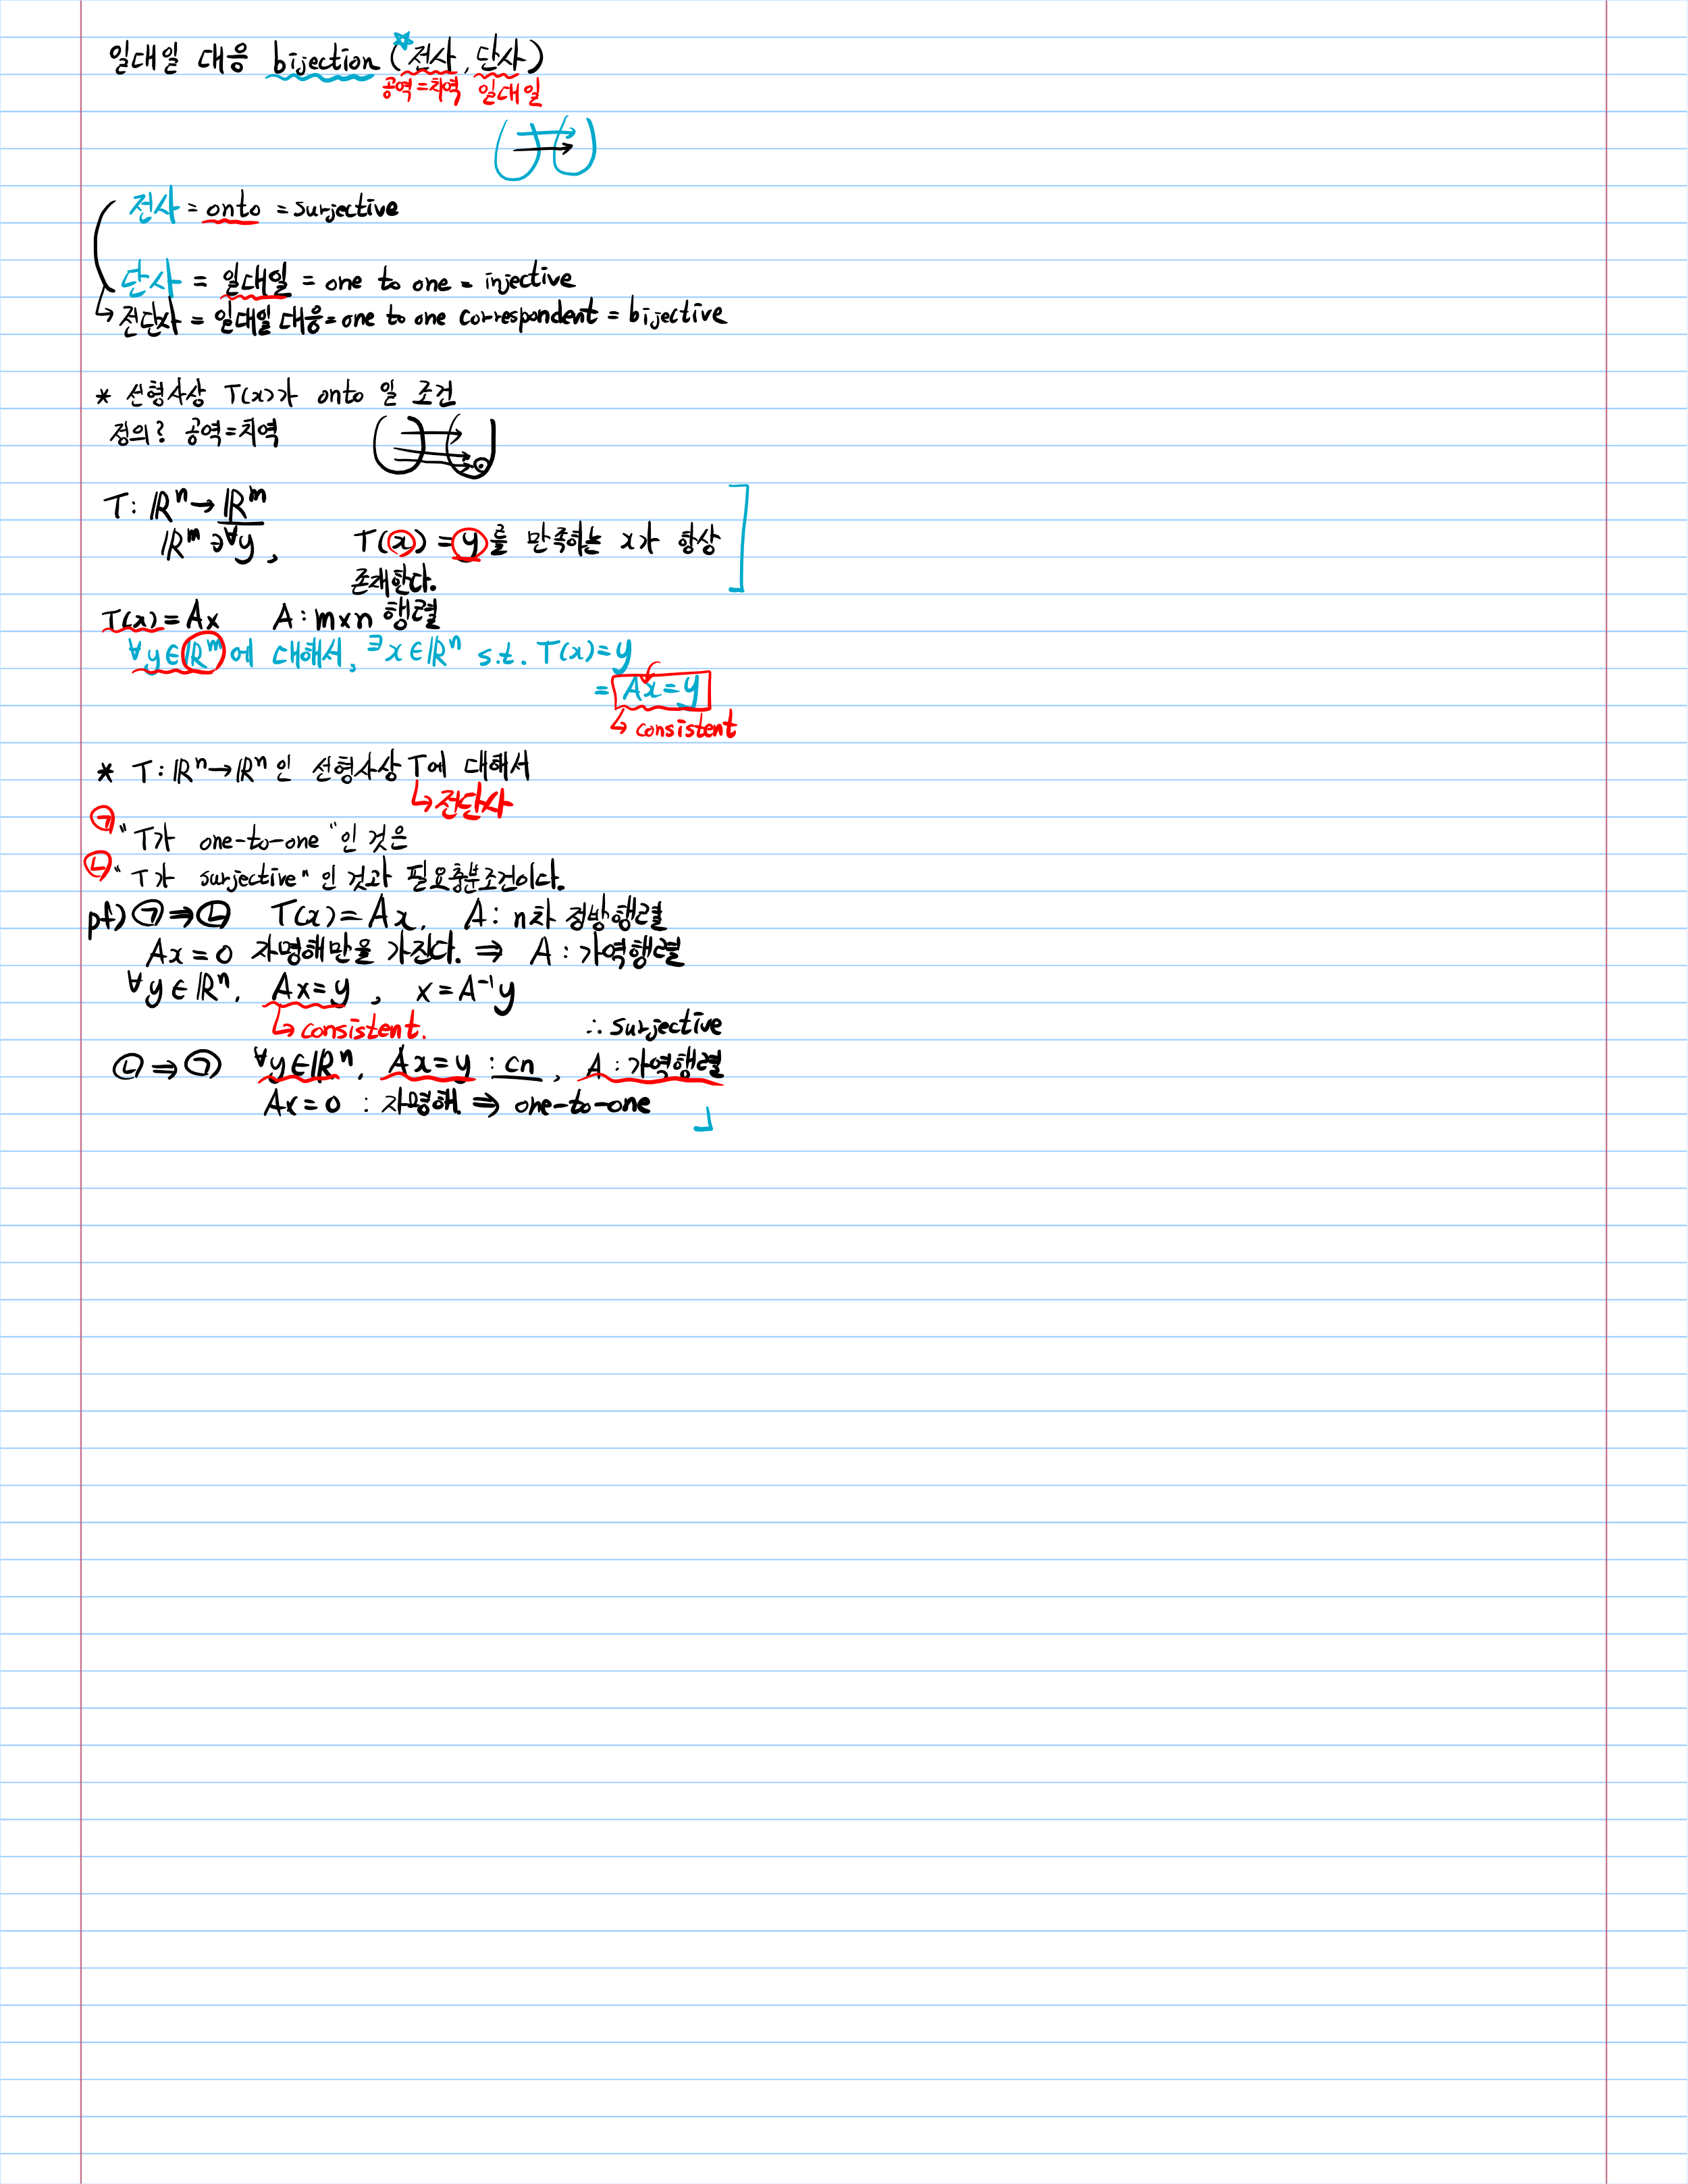 일대일 대응 bijection (전사, 단사)
공역=치역 일대일
전사 = onto = surjective
단사 = 일대일 = one to one = injective
↳ 전단사 = 일대일 대응 = one to one correspondent = bijective
* 선형사상 T(x)가 onto 일 조건
정의? 공역=치역
T: ℝⁿ → ℝᵐ
ℝᵐ ∋ ∀y, T(x) = y를 만족하는 x가 항상
존재한다.
T(x) = Ax A: m×n 행렬
∀y∈ℝᵐ에 대해서, ∃x∈ℝⁿ s.t. T(x)=y
= Ax=y
↳ consistent
* T: ℝⁿ→ℝⁿ인 선형사상 T에 대해서
↳ 전단사
㉠ "T가 one-to-one"인 것은
㉡ "T가 surjective"인 것과 필요충분조건이다.
pf) ㉠ ⇒ ㉡ T(x) = Ax, A: n차 정방행렬
Ax = 0 자명해만을 가진다. ⇒ A: 가역행렬
∀y∈ℝⁿ, Ax=y, x = A⁻¹y
↳ consistent. ∴ surjective
㉡ ⇒ ㉠ ∀y∈ℝⁿ, Ax=y : cn, A: 가역행렬
Ax=0 : 자명해 ⇒ one-to-one